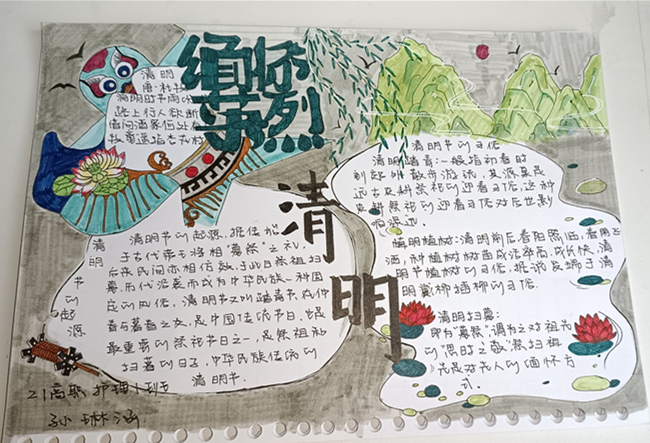 缅怀
英烈
清明
清明
唐·杜牧
清明时节雨纷
路上行人欲断
借问酒家何处有
牧童遥指杏花村
清明节的起源
清明节的起源，据传始
于古代帝王将相"墓祭"之礼，
后来民间亦相仿效，于此日祭祖扫
墓，历代沿袭而成为中华民族一种固
定的风俗，清明节又叫踏青节，
是中国传统节日，也是
最重要的祭祀节日之一，是祭祖和
扫墓的日子，中华民族传统的
清明节
清明节的习俗
清明踏青：一般指初春时
到郊外散步游玩，其源泉是
远古农耕祭祀的迎春习俗，这种
农耕祭祀的迎春习俗对后世影
响很远。
清明植树：清明前后春阳照临，春雨飞
洒，种植树苗成活率高，成长快，清
明节植树的习俗，据说发端于清
明戴柳插柳的习俗。
清明扫墓：
即为"墓祭"，谓之对祖先
的"思时之敬"祭扫祖
先是对先人的缅怀方
式。
21高职护理小班
孙琳涵